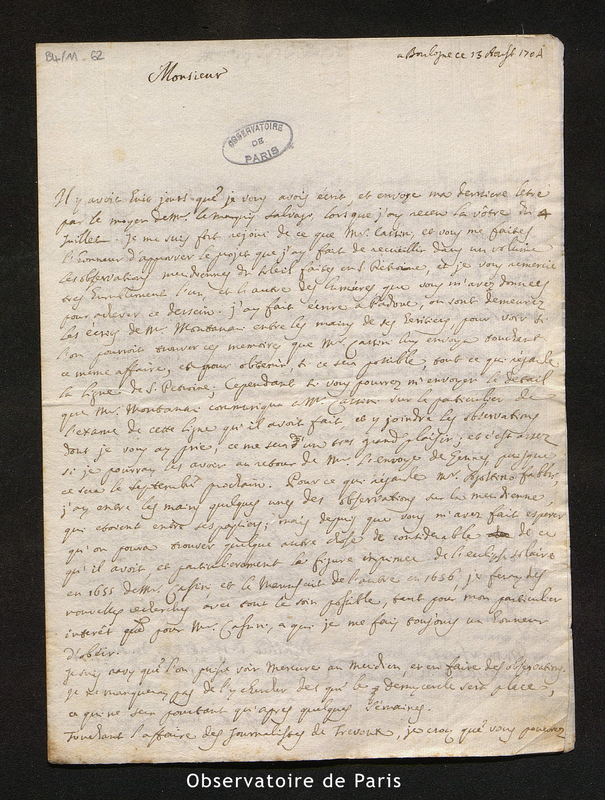 B4/11-62
a Boulogne ce 13 Aoust 1704
Monsieur
OBSERVATOIRE
DE
PARIS
Il y avoit huit jours que je vous avois écrit, et envoyé ma derniere letre
par le moyen de Mr. le marquis Salvago, lors que j'ay receu la vôtre du 4
Juillet. Je me suis fort rejoui de ce que Mr. Cassin, et vous me faites
l'honneur d'approuver le projet que j'ay fait de recueillir dans un volume
les observations meridiennes du soleil faites en S. Petrone, et je vous remercie
tres humblement l'un, et l'autre des lumieres que vous m'avez données
pour achever ce dessein. J'ay fait écrire a Padoue, ou sont demeurez
les écrits de Mr. Montanari entre les mains de ses heritiers pour voir si
l'on pourroit trouver ces memoires que Mr. Cassin luy envoya touchant
ce même affaire, et pour obtenir, si ce sera possible, tout ce qui regarde
la ligne de S. Petrone; Cependant si vous pourrez m'envoyer le detail
que Mr. Montanari communiqua a Mr. Cassini sur le particulier de
l'examen de cette ligne qu'il avoit fait, et y joindre les observations
dont je vous ay prie, ce me sera un tres grand plaisir, et c'est assez
si je pourray les avoir au retour de Mr. l'envoyé de Gennes, puisque
ce sera le septembre prochain. Pour ce qui regarde Mr. fabbri,
j'ay entre les mains quelques unes des observations sur la meridienne
qui etoient entre ses papiers; mais depuis que vous m'avez fait esperer
qu'on poura trouver quelque autre chose de considerable de ce
qu'il avoit et particulierement la figure imprimée de l'eclipse solaire
en 1655 de Mr. Cassin et le Manuscrit de l'autre en 1656, je feray des
nouvelles recherches avec tout le soin possible, tant pour mon particulier
interêt que pour Mr. Cassini, a qui je me fais toujours un honneur
d'obeir.
Je suis ravy que l'on puisse voir Mercure au meridien, et en faire des observations.
Je ne manqueray pas de l'y chercher des qui le demycercle sera placé,
ce qui ne sera pourtant qu'apres quelques semaines.
Touchant l'affaire des Journalistes de Trevoux, je croy que vous pouvez
Observatoire de Paris